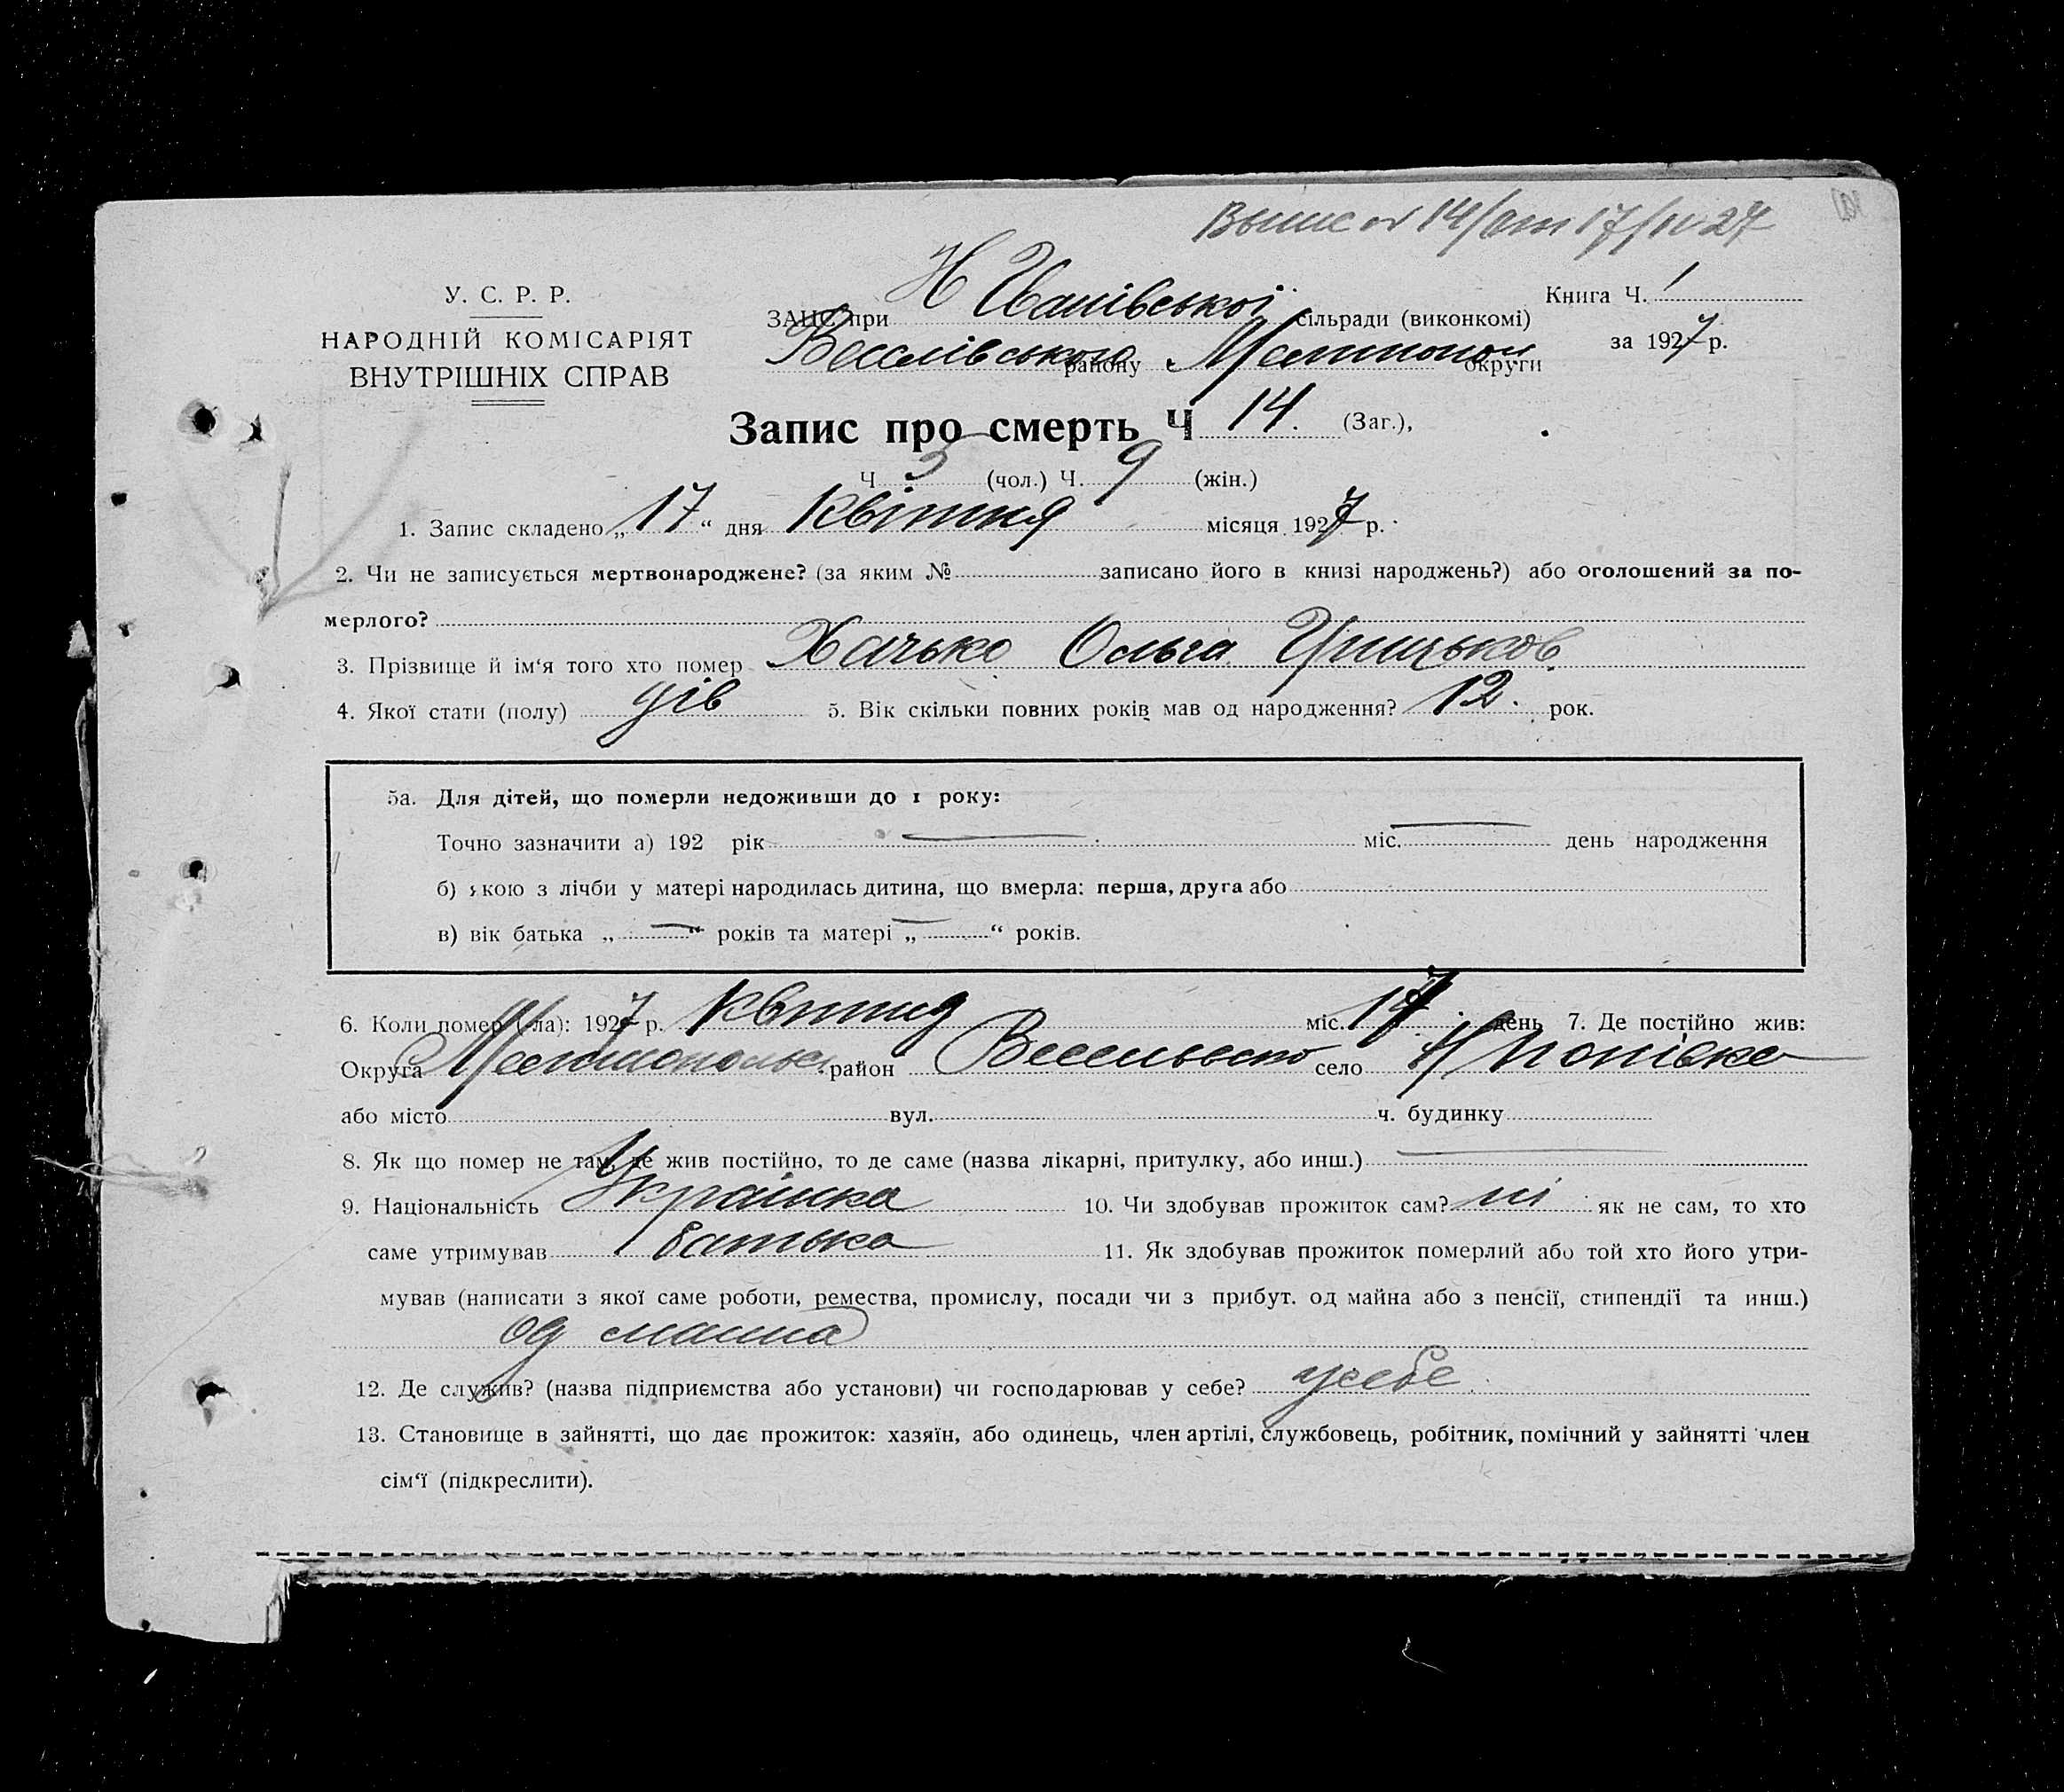 Выпис № 14/от 17/IV 27
У. С. Р. Р.
НАРОДНІЙ КОМІСАРІЯТ
ВНУТРІШНІХ СПРАВ
ЗАЦС при Н сільради (виконкомі)
Веселівського району Мелитопол округи
Книга Ч. 1
за 1927 р.
Запис про смерть Ч 14. (Заг.),
Ч 5 (чол.) Ч. 9 (жін.)
1. Запис складено „ 17 “ дня Квітня місяця 1927 р.
2. Чи не записується мертвонароджене? (за яким № записано його в книзі народжень?) або оголошений за по-
мерлого?
3. Прізвище й ім‘я того хто помер Хачько Ольга Грицьков.
4. Якої стати (полу) дів 5. Вік скільки повних років мав од народження? 12. рок.
5а. Для дітей, що померли недоживши до 1 року:
Точно зазначити а) 192 рік міс. день народження
б) якою з лічби у матері народилась дитина, що вмерла: перша, друга або
в) вік батька „ “ років та матері „ “ років.
6. Коли помер (ла): 1927 р. Квітня міс. 17 день 7. Де постійно жив:
Округа район село
або місто вул. ч. будинку
8. Як що помер не там, де жив постійно, то де саме (назва лікарні, притулку, або инш.)
9. Національність Українка 10. Чи здобував прожиток сам? ні як не сам, то хто
саме утримував батько 11. Як здобував прожиток померлий або той хто його утри-
мував (написати з якої саме роботи, ремества, промислу, посади чи з прибут. од майна або з пенсії, стипендії та инш.)
од маина
12. Де служив? (назва підприємства або установи) чи господарював у себе? усебе
13. Становище в зайнятті, що дає прожиток: хазяїн, або одинець, член артілі, службовець, робітник, помічний у зайнятті член
сім‘ї (підкреслити).